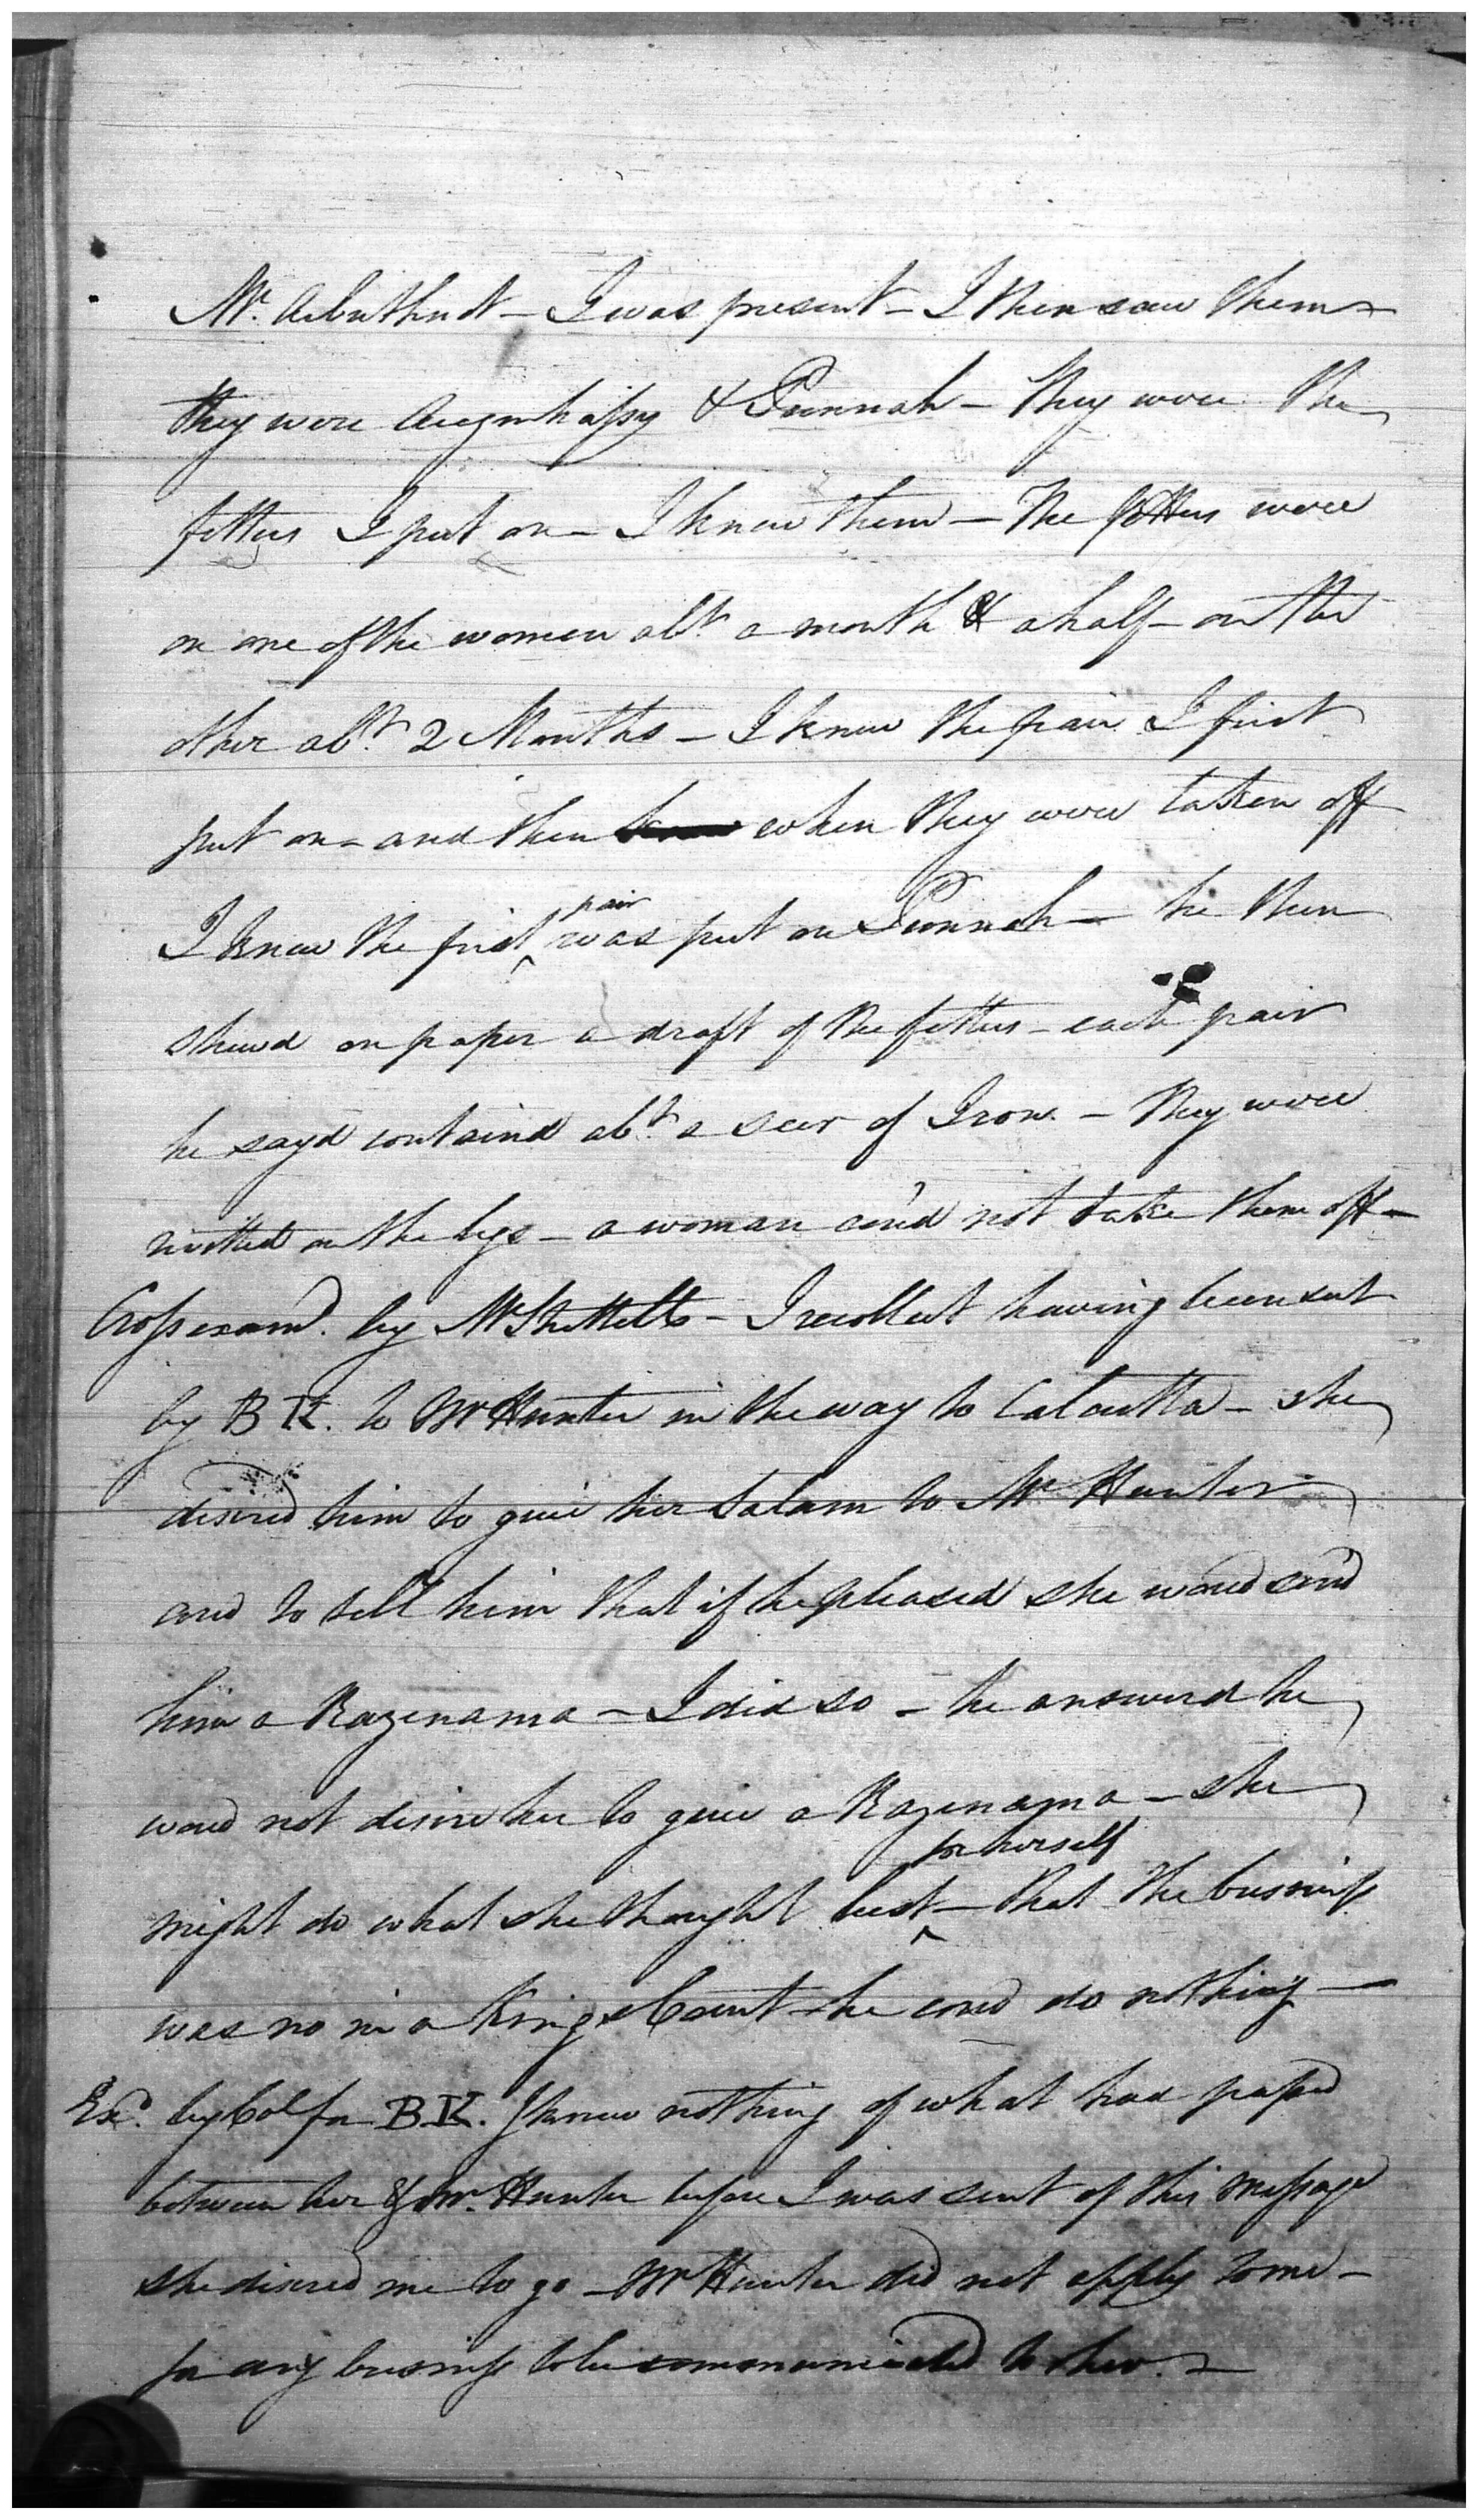 Mr. Arbuthnot – I was present – I then saw them –
they were Auzimhapsy & Punnah – They were the
fetters I put on – I knew them – The fetters were
on one of the women abt. a month & a half – on the
other abt. 2 Months – I knew the pair I first
put on – and then when they were taken off
I knew the first pair was put on Punnah – he then
shewd on paper a draft of the fetters – each pair
he sayd containd abt. a Seer of Iron – They were
rivitted on the legs – a woman coud not take them off –
Cross examd. by Mr Shettells – I recollect having been sent
by B K. to Mr Hunter in the way to Calcutta – she
desired him to give her Salam to Mr Hunter
and to tell him that if he pleased she woud send
him a Razenama – I did so – he answerd he
woud not desire her to give a Razenama – she
might do what she thought best for herself – that the business
was no in a Kings Court – he coud do nothing –
Exd. by Col for B K. I knew nothing of what had passed
between her & Mr. Hunter before I was sent of this Message
she disired me to go – Mr Hunter did not apply to me –
for any business to be communicated to her. –